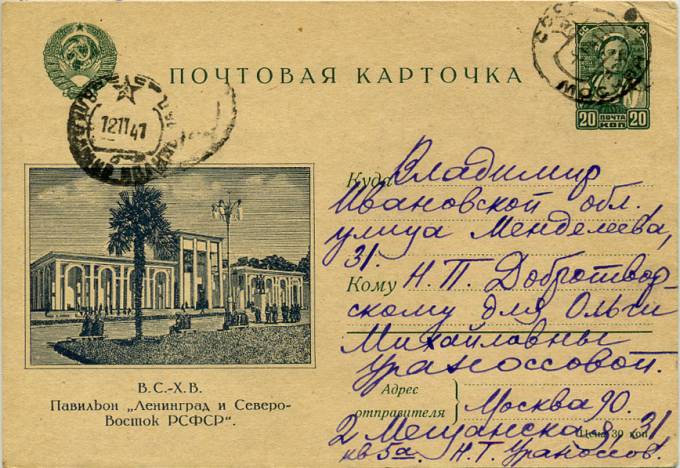 ПОЧТОВАЯ КАРТОЧКА
20 ПОЧТА КОП 20
12 11 41
Куда Владимир
Ивановской обл.
улица Менделеева,
31.
Кому Н. П. Добротвор-
скому для Ольги
Михайловны
Ураносовой.
В.С.-Х.В.
Павильон „Ленинград и Северо-
Восток РСФСР“.
Адрес
отправителя
Москва 90.
2 Мещанская 9, 31
кв 5а. Н.Т. Ураносов.
Цена 30 коп